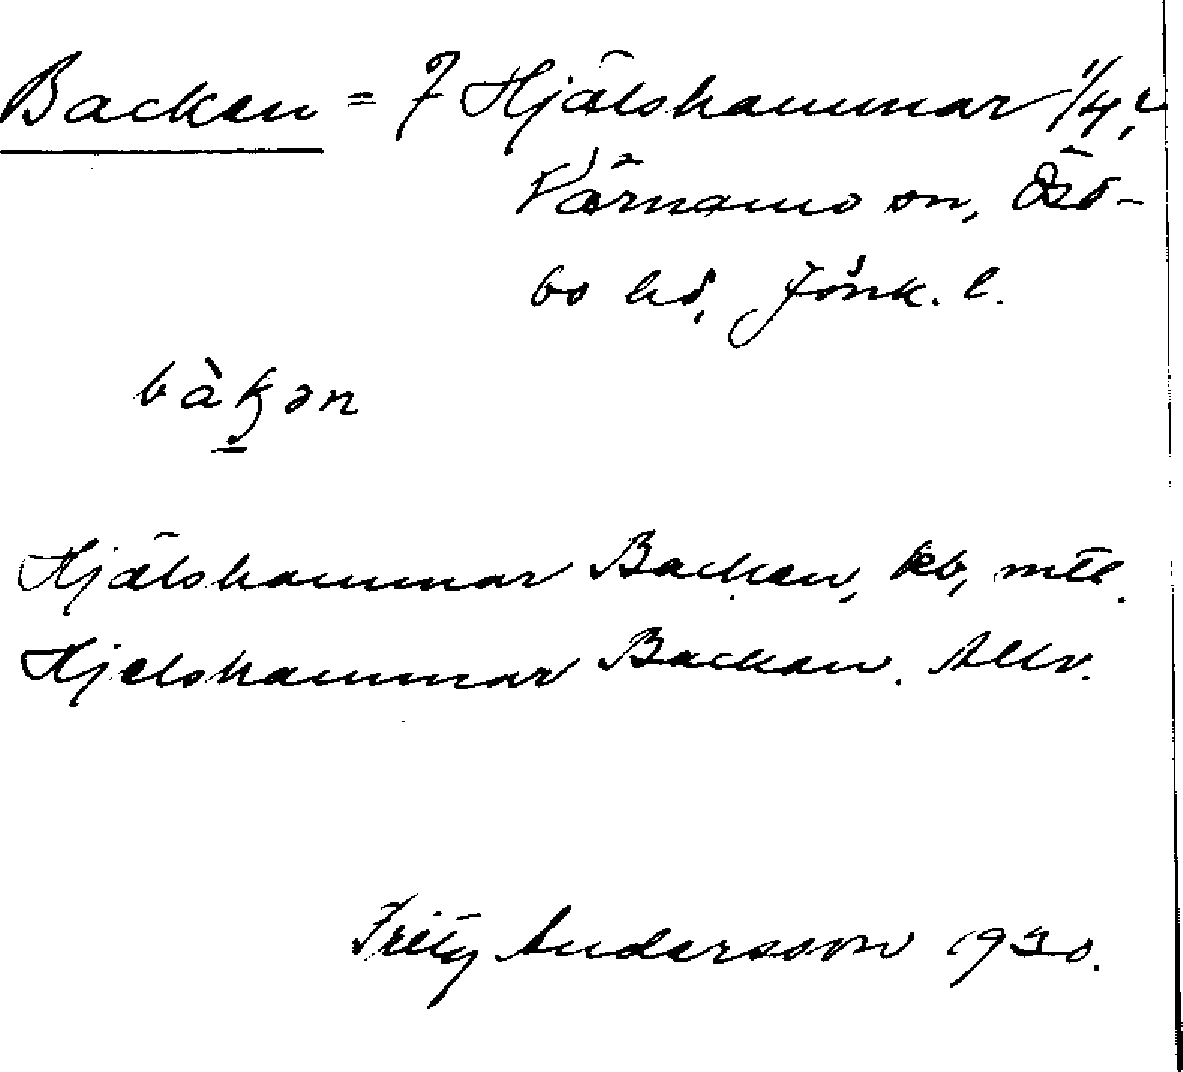 Backen = 7 Hjälshammar 1/4,
Värnamo sn, Östbo hd, Jönk. l.
bàkən
Hjälshammar Backen, kb, mtl.
Hjelshammar Backen. Allv.
Fritz Andersson 1930.